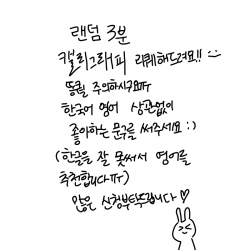 랜덤 3분
캘리그래피 리퀘해드려요!! :)
똥퀄 주의하시구요ㅠㅠ
한국어 영어 상관없이
좋아하는 문구를 써주세요 :)
(한글을 잘 못써서 영어를
추천합니다ㅠㅠ)
많은 신청부탁드립니다♡